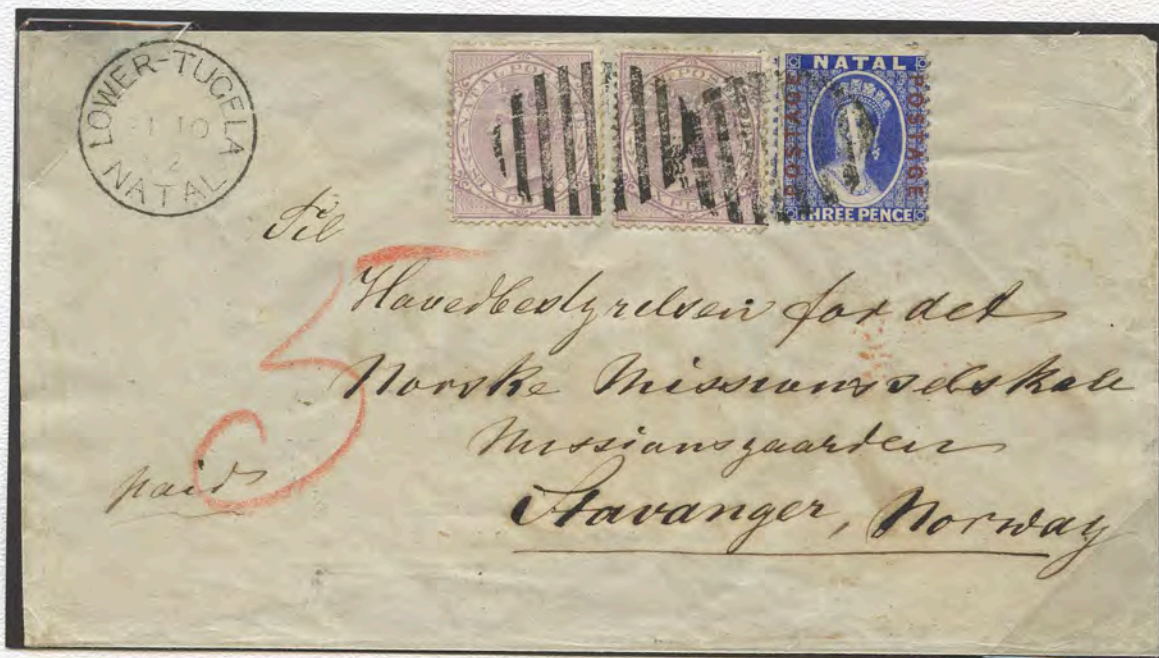 LOWER-TUGELA
10
2
NATAL
NATAL PO
SIX PE
POS
X PE
NATAL
POSTAGE
POSTAGE
THREE PENCE
Til
Hovedbestyrelsen for det
Norske Missionsselskab
Missionsgaarden
Stavanger, Norway
paid
5